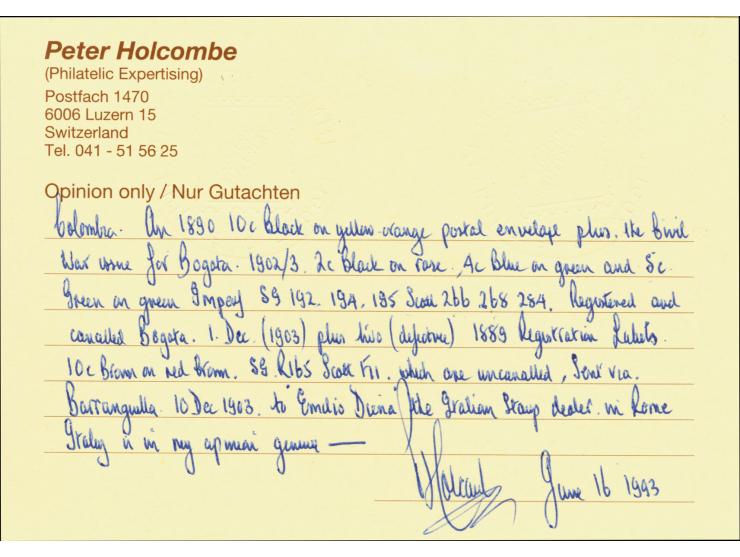 Peter Holcombe
(Philatelic Expertising)
Postfach 1470
6006 Luzern 15
Switzerland
Tel. 041 - 51 56 25
Opinion only / Nur Gutachten
Colombia. An 1890 10c Black on yellow-orange postal envelope plus. the Civil
War issue for Bogota. 1902/3. 2c Black on rose. 4c Blue on green and 5c.
Green on green Imperf SG 192. 194. 195 Scott 266 268 284. Registered and
cancelled Bogota. 1. Dec. (1903) plus two (defective) 1889 Registration Labels.
10c Brown on red Brown. SG R165 Scott F11. which are uncancelled, Sent via.
Barranquilla. 10 Dec 1903. to Emilio Diena (the Italian Stamp dealer. in Rome
Italy is in my opinion genuine —
Holcombe June 16 1993